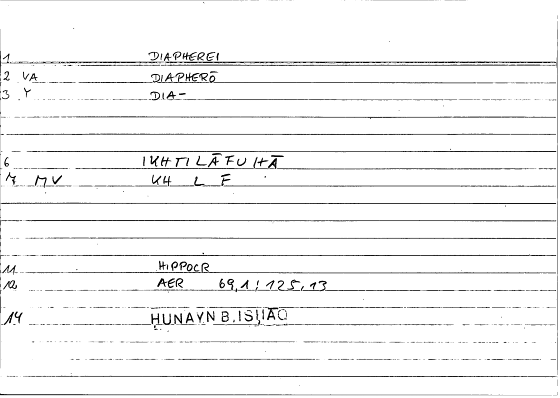 1 DIAPHEREI
2 VA DIAPHERŌ
3 Y DIA-
6 IKHTILĀFUHĀ
7 MV KH L F
11 HIPPOCR
12 AER 69,1; 125,13
14 HUNAYN B. ISḤĀQ